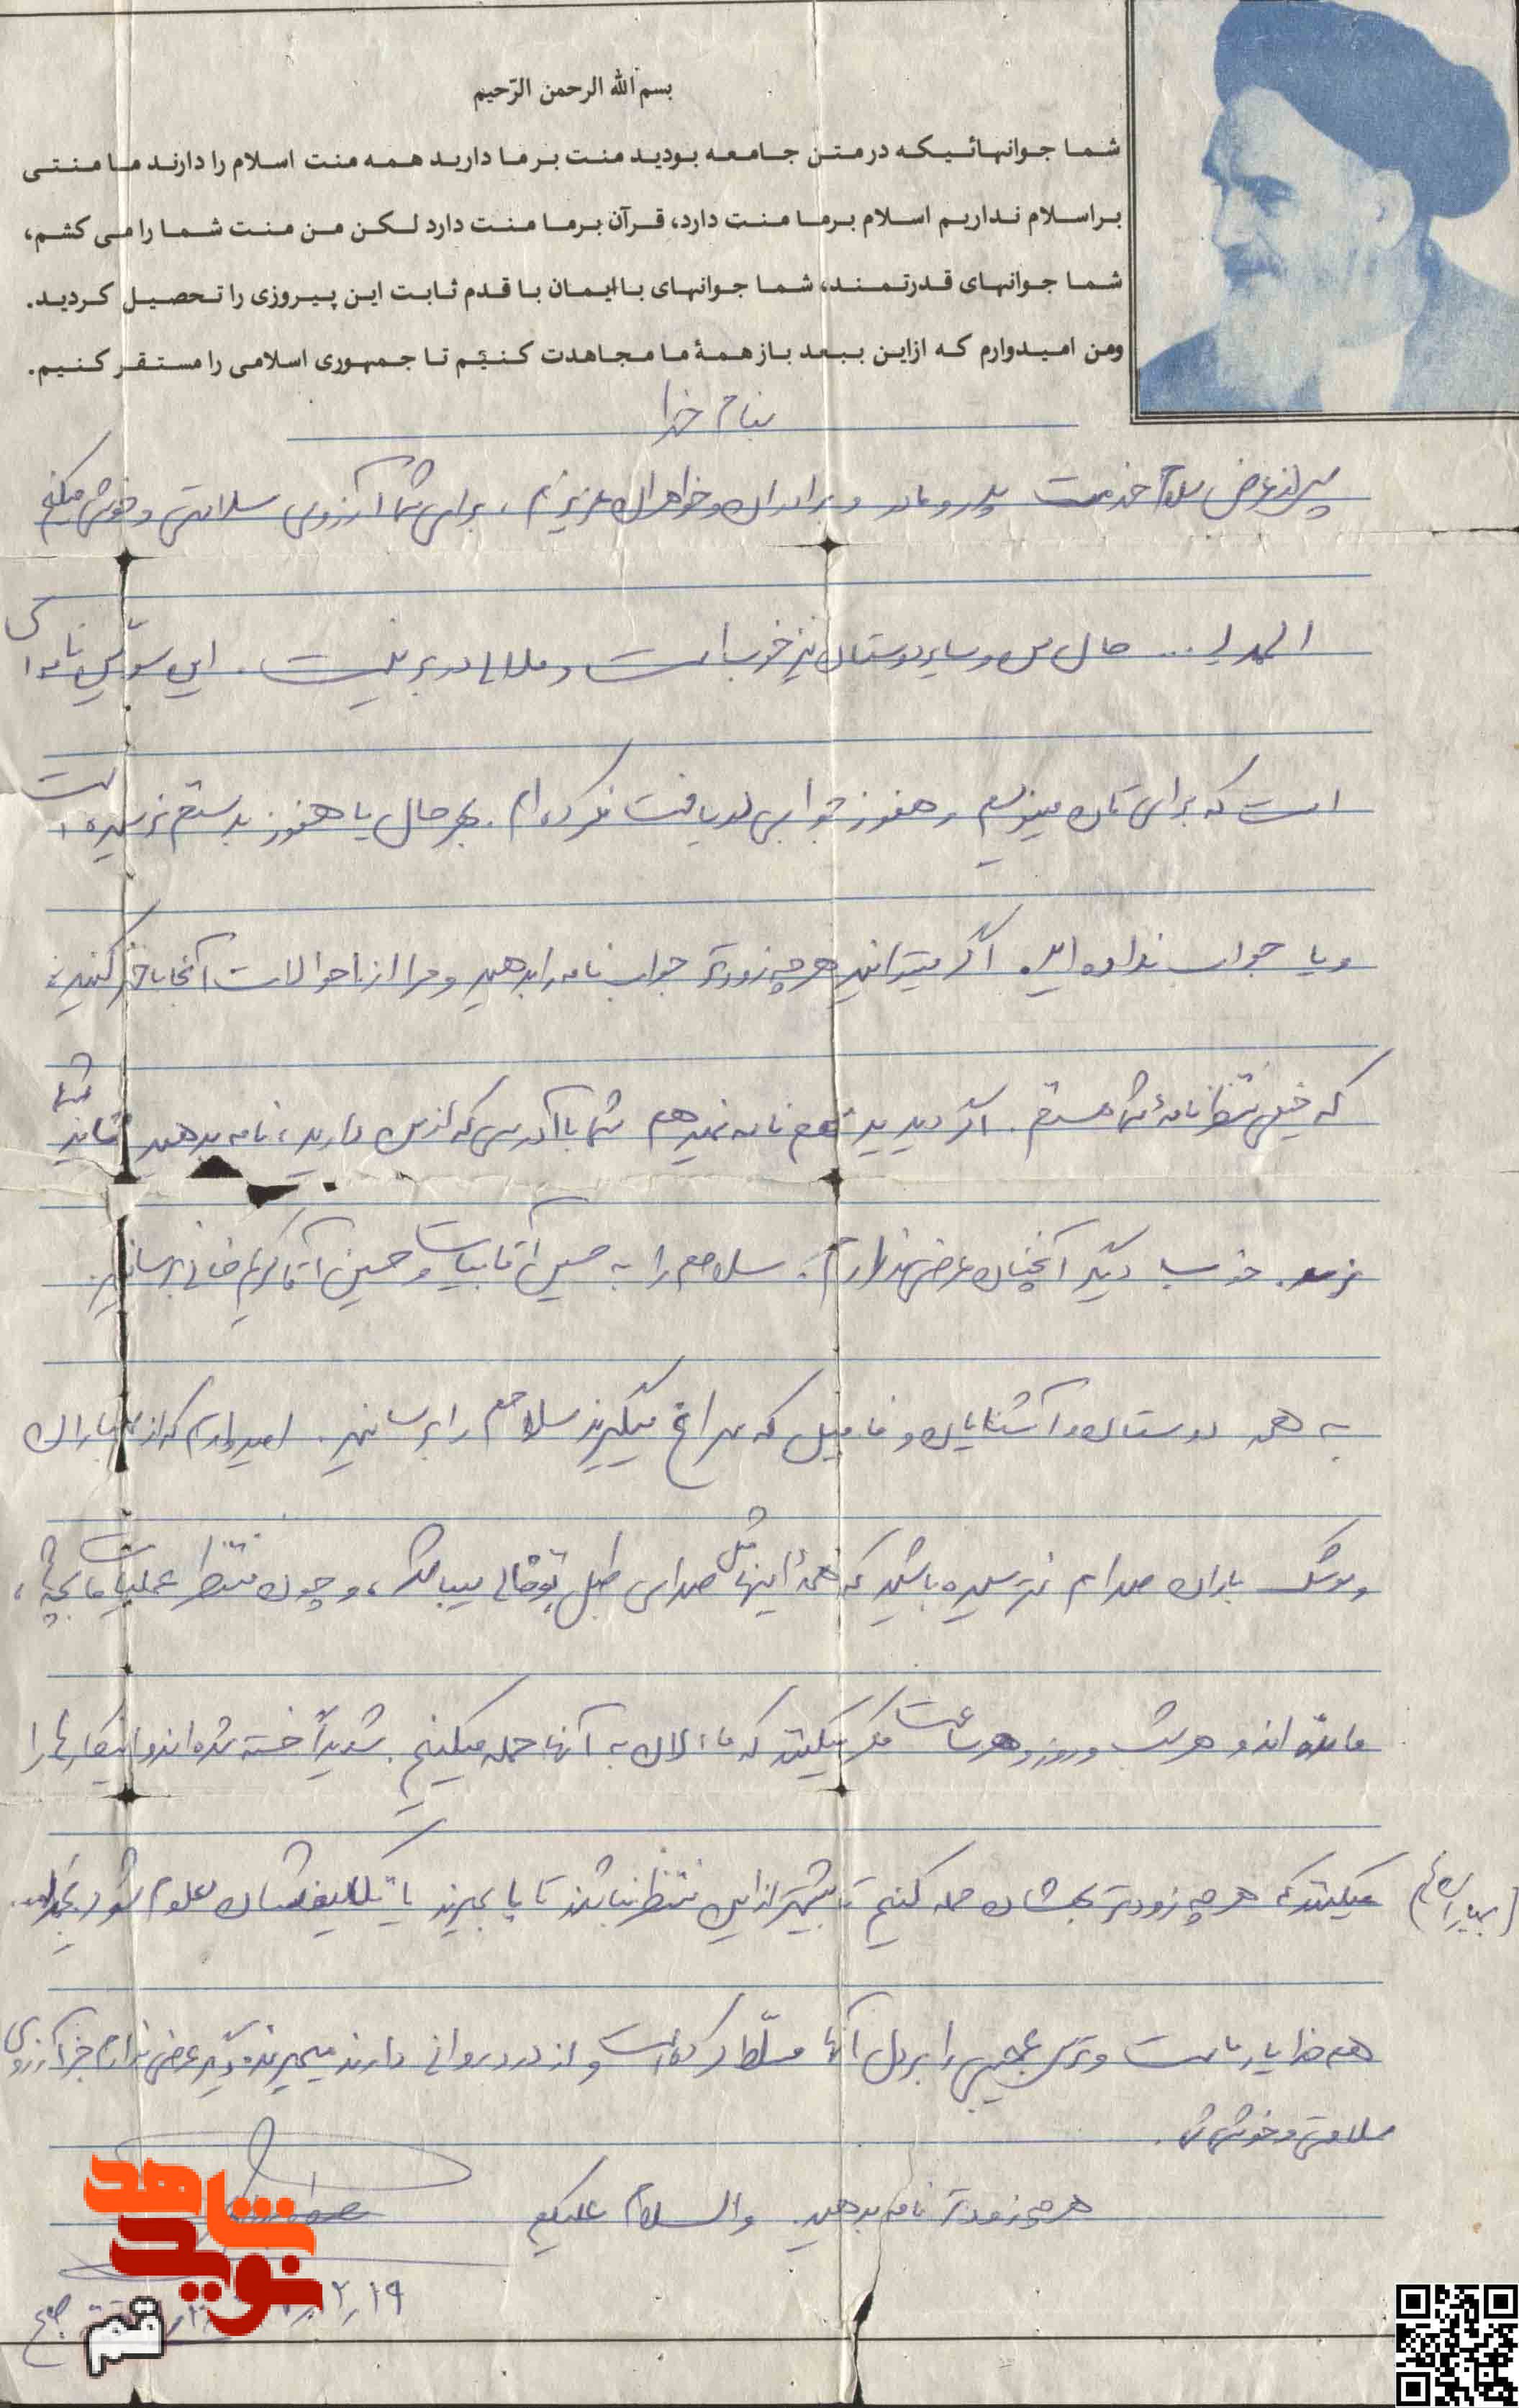 بسم الله الرحمن الرّحیم
شما جوانهائیکه در متن جامعه بودید منت بر ما دارید همه منت اسلام را دارند ما منتی
بر اسلام نداریم اسلام برما منت دارد، قرآن برما منت دارد لکن من منت شما را می کشم،
شما جوانهای قدرتمند، شما جوانهای با ایمان با قدم ثابت این پیروزی را تحصیل کردید.
ومن امیدوارم که ازاین ببعد باز همهٔ ما مجاهدت کنیم تا جمهوری اسلامی را مستقر کنیم.
بنام خدا
پس از عرض سلام خدمت پدر و مادر و برادران و خواهران عزیزم، برای شما آرزوی سلامتی و خوشی میکنم
الحمدلله... حال من و سایر دوستان نیز خوب است و ملالی در بر نیست. این نامه‌ای
است که برای تان مینویسم و هنوز جوابی دریافت نکرده ام. بهرحال یا هنوز بدستم نرسیده است
و یا جواب نداده اید. اگر میتوانید هر چه زودتر جواب نامه را بدهید و مرا از احوالات آنجا باخبر کنید
که خیلی منتظر نامهٔ شما هستم. اگر دیدید نامه نمیدهم شما با آدرسی که از من دارید، نامه بدهید
خوب دیگر آنچنان عرضی ندارم. سلام مرا به حسین آقا و حسین آقا برسانید.
به همه دوستان و آشنایان و فامیل که سراغ میگیرند سلام مرا برسانید. امیدوارم که از بمباران
و موشک باران صدام نترسیده باشید که همهٔ اینها مثل صدای طبل توخالی میباشد، و چون منتظر عملیات ما بچه‌ها،
مانده اند و هر شب و روز و هر ساعت فکر میکنند که ما الان به آنها حمله میکنیم. شدیداً خسته شده اند و اینکارها را
میکنند که هر چه زودتر بهشان حمله کنیم تا بیشتر از این منتظر نباشند تا یا بمیرند یا تکلیفشان معلوم شود
هم خدا یار ماست و ترس عجیبی را بر دل آنها مسلّط کرده است و از درد روانی دارند میمیرند. دیگر عرضی ندارم جز آرزوی
سلامتی و خوشی شما.
هر چه زودتر نامه بدهید. والسلام علیکم
۲/۱۹
صبح
شاهد
نوید
قم